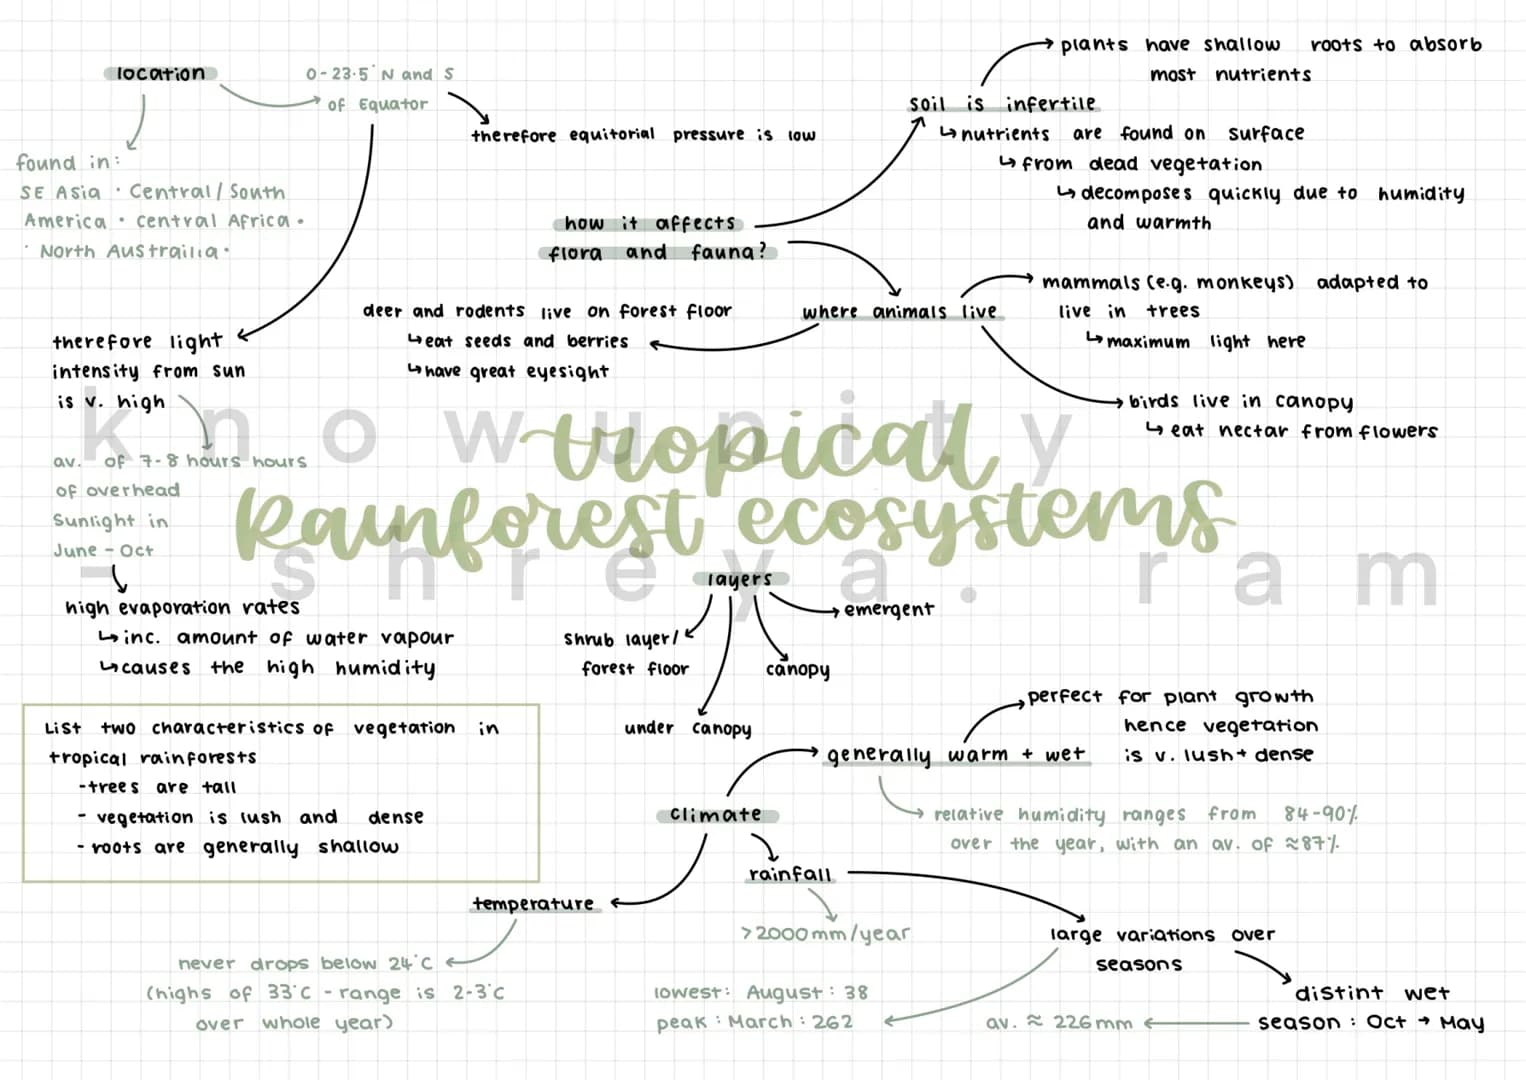 location
0-23.5°N and S
of Equator
therefore equitorial pressure is low
found in:
SE Asia · Central/South
America · central Africa ·
· North Austrailia ·
therefore light
intensity from sun
is v. high
av. of 7-8 hours hours
of overhead
Sunlight in
June - Oct
high evaporation rates
↳inc. amount of water vapour
↳causes the high humidity
how it affects
flora and fauna?
soil is infertile
plants have shallow roots to absorb
most nutrients
↳nutrients are found on surface
↳from dead vegetation
↳decomposes quickly due to humidity
and warmth
where animals live
mammals (e.g. monkeys) adapted to
live in trees
↳maximum light here
birds live in canopy
↳eat nectar from flowers
deer and rodents live on forest floor
↳eat seeds and berries
↳have great eyesight
knowunity
tropical
Rainforest ecosystems
- shreya.ram
layers
emergent
shrub layer/
forest floor
canopy
under canopy
List two characteristics of vegetation in
tropical rainforests
-trees are tall
- vegetation is lush and dense
- roots are generally shallow
climate
generally warm + wet
perfect for plant growth
hence vegetation
is v. lush+ dense
relative humidity ranges from 84-90%
over the year, with an av. of ≈87%
rainfall
>2000mm/year
large variations over
seasons
distint wet
season : Oct → May
av. ≈ 226mm
lowest: August : 38
peak : March : 262
temperature
never drops below 24°C
(highs of 33°C - range is 2-3°C
over whole year)